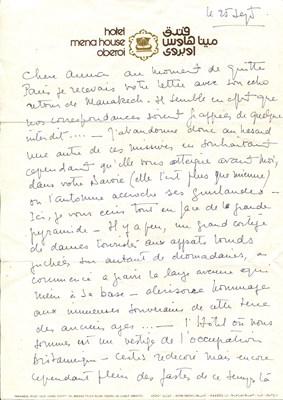 le 25 Sept
hotel
mena house
oberoi
فندق
مينا هاوس
أوبروي
Chère Anna au moment de quitter
Paris je recevais votre lettre avec son écho
retour de Marrakech. Il semble en effet que
nos correspondances soient frappées de quelque
interdit.... — J'abandonne donc au hasard
une autre de ces missives en souhaitant
cependant qu'elle vous atteigne avant moi,
dans votre Savoie (elle l'est plus que mienne)
où l'automne accroche ses guirlandes —
Ici, je vous écris tout en face de la grande
pyramide — Il y a peu, un grand cortège
de dames touristes aux appats lourds
juchées sur autant de dromadaires, a
commencé a gravir la large avenue qui
mène à sa base — dérisoire hommage
aux souverains de cette terre
des anciens ages .... — l'Hôtel où nous
sommes est un vestige de l'occupation
Britannique — certes redécoré mais encore
cependant plein des fastes de ce temps là